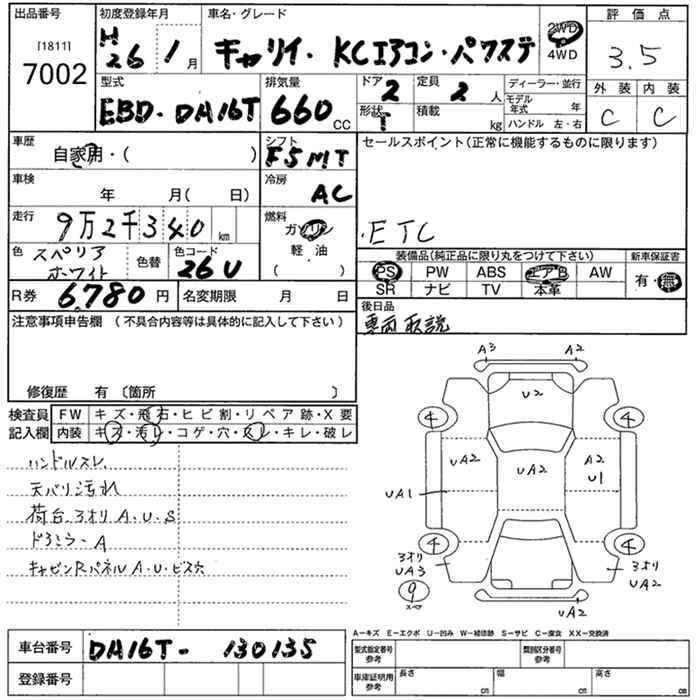 出品番号
初度登録年月
車名・グレード
評価点
[1811]
7002
H 26 年 1 月
キャリイ・KCエアコン・パワステ
2WD
4WD
3.5
型式
EBD-DA16T
排気量
660 CC
ドア 2
定員 2 人
形状 T
積載 kg
ディーラー・並行
モデル年式 年
ハンドル 左・右
外装 内装
C C
車歴
自家用・( )
シフト
F5MT
セールスポイント(正常に機能するものに限ります)
車検
年 月( 日)
冷房
AC
走行
9万2千340 km
燃料
ガソリン
軽・油
( )
・ETC
色 スペリアホワイト
色替
色コード
26U
装備品(純正品に限り丸をつけて下さい)
新車保証書
PS PW ABS エアB AW
SR ナビ TV 本革
有・無
R券 6,780 円
名変期限 月 日
後日品
車両取説
注意事項申告欄 (不具合内容等は具体的に記入して下さい)
修復歴 有〔箇所 〕
検査員
記入欄
FW キズ・飛石・ヒビ割・リペア跡・X要
内装 キズ・汚レ・コゲ・穴・スレ・キレ・破レ
ハンドルスレ
天バリ汚れ
荷台、3オリA.U.S
ドアミラーA
キャビンRパネルA.U.ビス穴
A3 A2
U2
4 4
UA2 UA2 A2
U1
UA1
4 4
3オリ
UA3
3オリ
UA2
9
スペア
UA2
A-キズ E-エクボ U-凹み W-補修跡 S-サビ C-腐食 XX-交換済
車台番号
DA16T-130135
登録番号
型式指定番号
参考
類別区分番号
参考
車庫証明用
参考
長さ cm
幅 cm
高さ cm